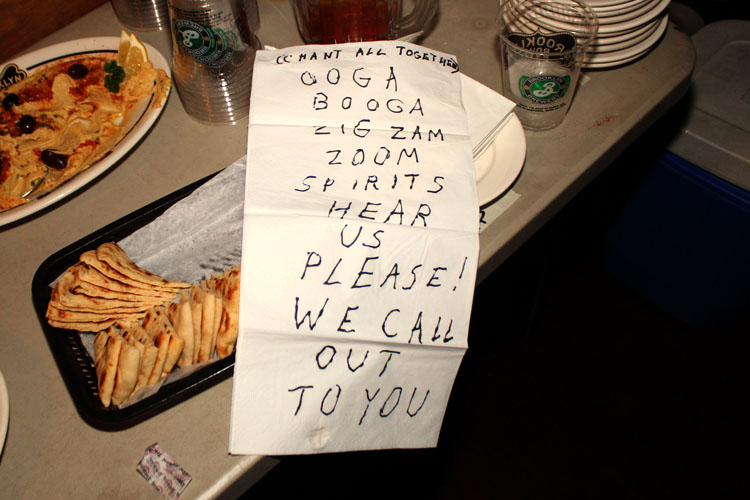 (CHANT ALL TOGETHER)
OOGA
BOOGA
ZIG ZAM
ZOOM
SPIRITS
HEAR
US
PLEASE!
WE CALL
OUT
TO YOU
BROOKLYN